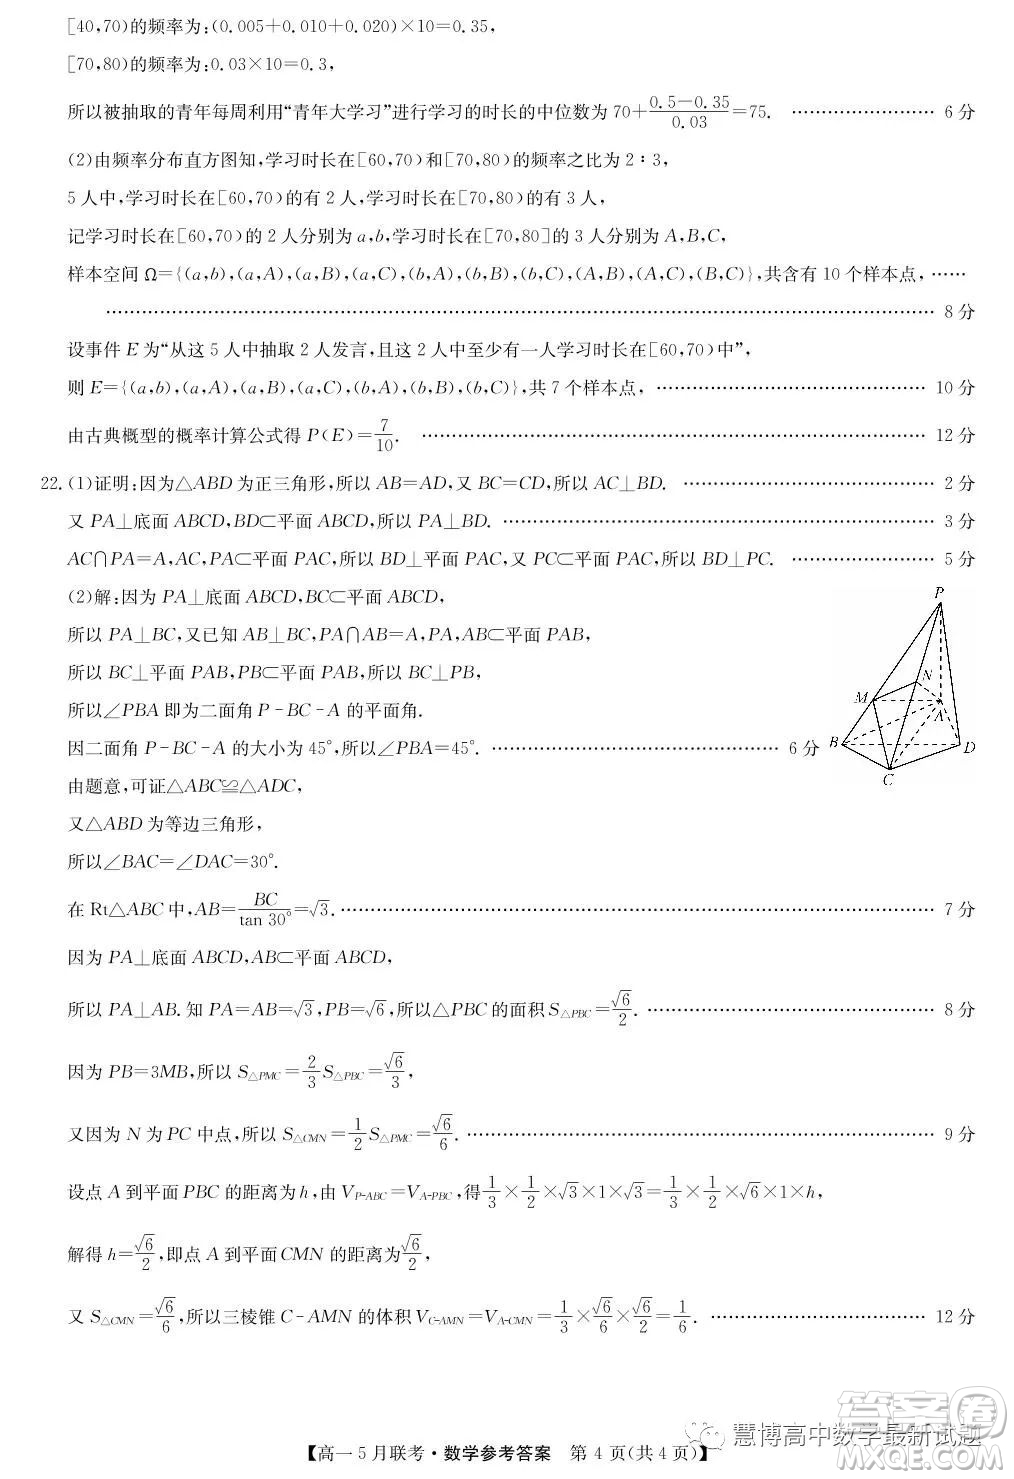 [40,70)的频率为:(0.005+0.010+0.020)×10=0.35,
[70,80)的频率为:0.03×10=0.3,
所以被抽取的青年每周利用“青年大学习”进行学习的时长的中位数为 70+\frac{0.5-0.35}{0.03}=75. …………………… 6 分
(2)由频率分布直方图知,学习时长在[60,70)和[70,80)的频率之比为 2∶3,
5 人中,学习时长在[60,70)的有 2 人,学习时长在[70,80)的有 3 人,
记学习时长在[60,70)的 2 人分别为 a,b,学习时长在[70,80]的 3 人分别为 A,B,C,
样本空间 Ω={(a,b),(a,A),(a,B),(a,C),(b,A),(b,B),(b,C),(A,B),(A,C),(B,C)},共含有 10 个样本点, ……
…………………… 8 分
设事件 E 为“从这 5 人中抽取 2 人发言,且这 2 人中至少有一人学习时长在[60,70)中”,
则 E={(a,b),(a,A),(a,B),(a,C),(b,A),(b,B),(b,C)},共 7 个样本点, …………………… 10 分
由古典概型的概率计算公式得 P(E)=\frac{7}{10}. …………………… 12 分
22.(1)证明:因为△ABD 为正三角形,所以 AB=AD,又 BC=CD,所以 AC⊥BD. …………………… 2 分
又 PA⊥底面 ABCD,BD⊂平面 ABCD,所以 PA⊥BD. …………………… 3 分
AC∩PA=A,AC,PA⊂平面 PAC,所以 BD⊥平面 PAC,又 PC⊂平面 PAC,所以 BD⊥PC. …………………… 5 分
(2)解:因为 PA⊥底面 ABCD,BC⊂平面 ABCD,
所以 PA⊥BC,又已知 AB⊥BC,PA∩AB=A,PA,AB⊂平面 PAB,
所以 BC⊥平面 PAB,PB⊂平面 PAB,所以 BC⊥PB,
所以∠PBA 即为二面角 P-BC-A 的平面角.
因二面角 P-BC-A 的大小为 45°,所以∠PBA=45°. …………………… 6 分
P
N
M
A
B
D
C
由题意,可证△ABC≌△ADC,
又△ABD 为等边三角形,
所以∠BAC=∠DAC=30°.
在 Rt△ABC 中,AB=\frac{BC}{tan 30°}=√3. …………………… 7 分
因为 PA⊥底面 ABCD,AB⊂平面 ABCD,
所以 PA⊥AB.知 PA=AB=√3,PB=√6,所以△PBC 的面积 S△PBC=\frac{√6}{2}. …………………… 8 分
因为 PB=3MB,所以 S△PMC=\frac{2}{3}S△PBC=\frac{√6}{3},
又因为 N 为 PC 中点,所以 S△CMN=\frac{1}{2}S△PMC=\frac{√6}{6}. …………………… 9 分
设点 A 到平面 PBC 的距离为 h,由 V_{P-ABC}=V_{A-PBC},得\frac{1}{3}×\frac{1}{2}×√3×1×√3=\frac{1}{3}×\frac{1}{2}×√6×1×h,
解得 h=\frac{√6}{2},即点 A 到平面 CMN 的距离为\frac{√6}{2},
又 S△CMN=\frac{√6}{6},所以三棱锥 C-AMN 的体积 V_{C-AMN}=V_{A-CMN}=\frac{1}{3}×\frac{√6}{6}×\frac{√6}{2}=\frac{1}{6}. …………………… 12 分
【高一 5 月联考·数学参考答案 第 4 页(共 4 页)】
慧博高中数学最新试题
答案圈
MXQE.COM